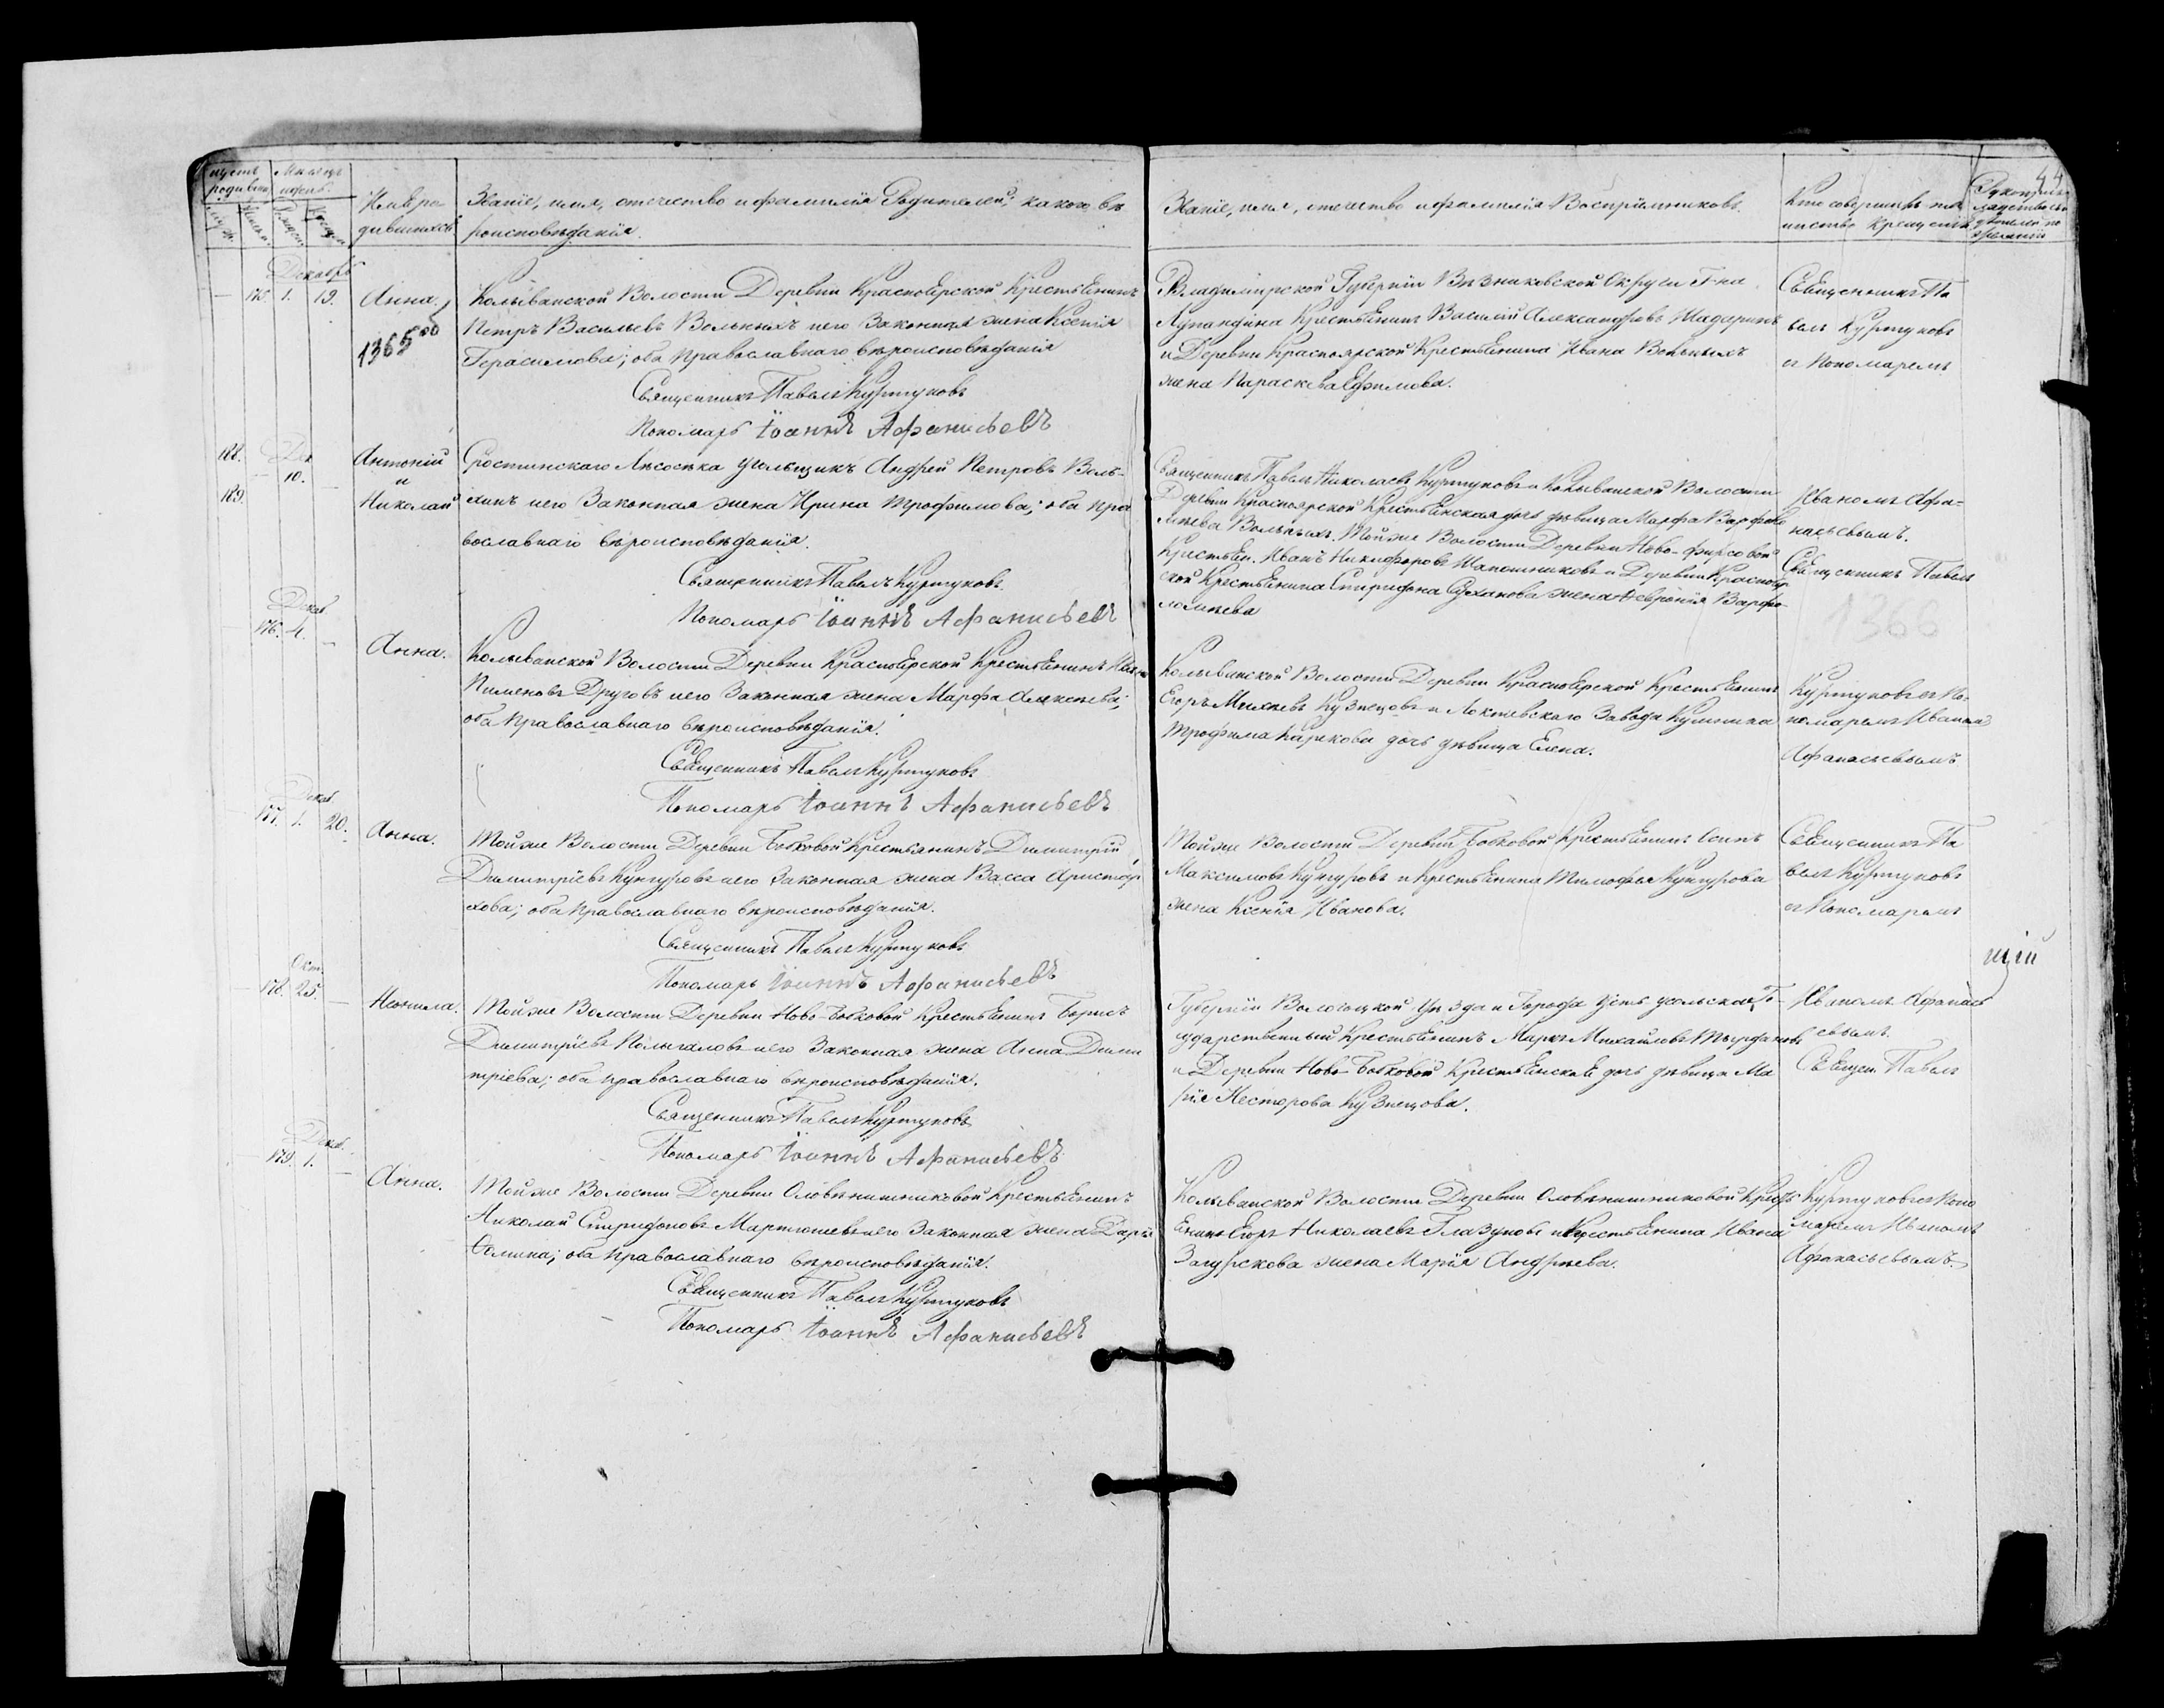 Имена ро
дившихся
Званіе, имя, отечество и фамилія Родителей, и какого вѣ
роисповѣданія.
Званіе, имя, отечество и фамилія Воспріемниковъ.
Кто совершалъ та
инство крещенія
44
Декабрь
175. 1. 19.
Анна.
1365
Колыванской Волости Деревни Красноярской Крестьянинъ
Петръ Васильевъ Вольныхъ и его Законная жена Ксенія
Герасимова; оба православнаго вѣроисповѣданія
Священникъ Павелъ Куртуковъ
Пономарь Іоаннъ Афанасьевъ
Владимирской Губерніи Вязниковской Округи Г-на
Лупандина Крестьянинъ Василій Александровъ Шадаринъ
и Деревни Красноярской Крестьянина Ивана Вольныхъ
жена Параскева Ефимова.
Священникъ Па
велъ Куртуковъ
съ Пономаремъ
188.
Дек
10.
189.
Антоній
и
Николай
Сростинскаго Лѣсосѣка угольщикъ Андрей Петровъ Воль-
хинъ и его Законная жена Ирина Трофимова; оба пра
вославнаго вѣроисповѣданія.
Священникъ Павелъ Куртуковъ.
Пономарь Іоаннъ Афанасьевъ
Священникъ Павелъ Николаевъ Куртуковъ и Колыванской Волости
Деревни Красноярской Крестьянская дочь дѣвица Марфа Варфоло
мѣева Вольныхъ. Той же Волости Деревни Ново-фирсовой
Крестьян. Иванъ Никифоровъ Шапошниковъ и Деревни Краснояр
ской Крестьянина Спиридона Суханова жена Февронія Варфо-
ломѣева
Иваномъ Афа-
насьевымъ.
Священникъ Павелъ
1366
Декаб.
176. 4.
Анна.
Колыванской Волости Деревни Красноярской Крестьянинъ Иванъ
Пименовъ Друговъ и его Законная жена Марфа Алексѣева;
оба православнаго вѣроисповѣданія.
Священникъ Павелъ Куртуковъ
Пономарь Іоаннъ Афанасьевъ
Колыванской Волости Деревни Красноярской Крестьянинъ
Егоръ Михѣевъ Кузнецовъ и Локтевскаго Завода
Трофима дочь дѣвица Елена.
Куртуковъ съ По-
номаремъ Иваномъ
Афанасьевымъ
Декаб.
177. 1. 20.
Анна.
Той же Волости Деревни Бобковой Крестьянинъ Димитрій
Димитріевъ Кунгуровъ и его Законная жена Васса Аристар
хова; оба православнаго вѣроисповѣданія.
Священникъ Павелъ Куртуковъ
Пономарь Іоаннъ Афанасьевъ
Той же Волости Деревни Бобковой Крестьянинъ Осипъ
Максимовъ Кунгуровъ и Крестьянина Тимофея Кунгурова
жена Ксенія Иванова.
Священникъ Па
велъ Куртуковъ
съ Пономаремъ
щій
Окт.
178. 25.
Неонила.
Той же Волости Деревни Ново-Бобковой Крестьянинъ Борисъ
Димитріевъ Полыгаловъ и его Законная жена Анна Дими
тріева; оба православнаго вѣроисповѣданія.
Священникъ Павелъ Куртуковъ
Пономарь Іоаннъ Афанасьевъ
Губерніи Вологоцкой Уѣзда и Города Усть усольска Го-
ударственный Крестьянинъ Маркъ Михайловъ
и Деревни Ново-Бобковой Крестьянская дочь дѣвица Ма
рія Несторова Кузнецова.
Иваномъ Афанась
евымъ.
Священ. Павелъ
Декаб.
179. 1.
Анна.
Той же Волости Деревни Оловянишниковой Крестьянинъ
Николай Спиридоновъ Мартюшевъ и его Законная жена Дарія
Фомина; оба православнаго вѣроисповѣданія.
Священникъ Павелъ Куртуковъ
Пономарь Іоаннъ Афанасьевъ
Колыванской Волости Деревни Оловянишниковой Кресть
янинъ Егоръ Николаевъ Глазуновъ и Крестьянина Ивана
Загурскова жена Марія Андрѣева.
Куртуковъ съ Поно
маремъ Иваномъ
Афанасьевымъ.